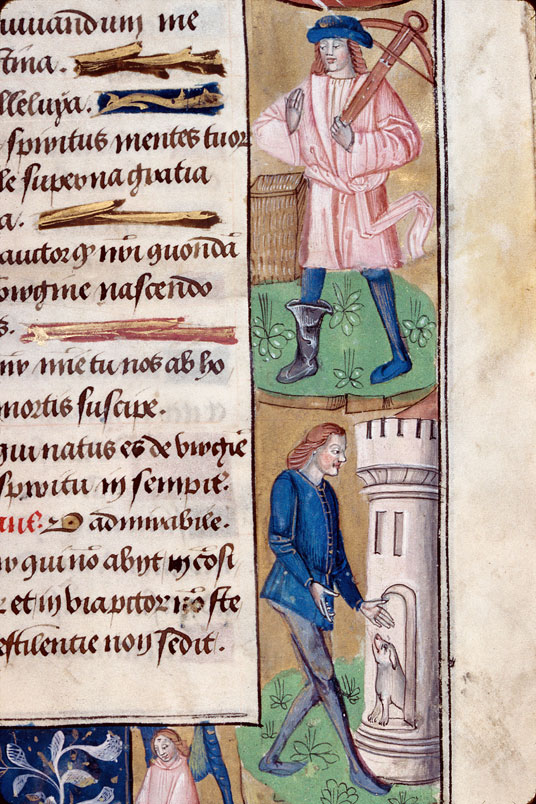 iuuandum me
stina.
lleluya.
spiritus mentes tuor
le superna gratia
a.
auctor q̃ nr̃i quondã
virgine nascendo
s.
nr̃ mie tu nos ab ho
mortis suscipe.
qui natus es de virgĩe
spiritu in sempit̃.
admirabile.
r qui nõ abijt in cõsi
r et in via pctor nõ ste
estilentie non sedit.